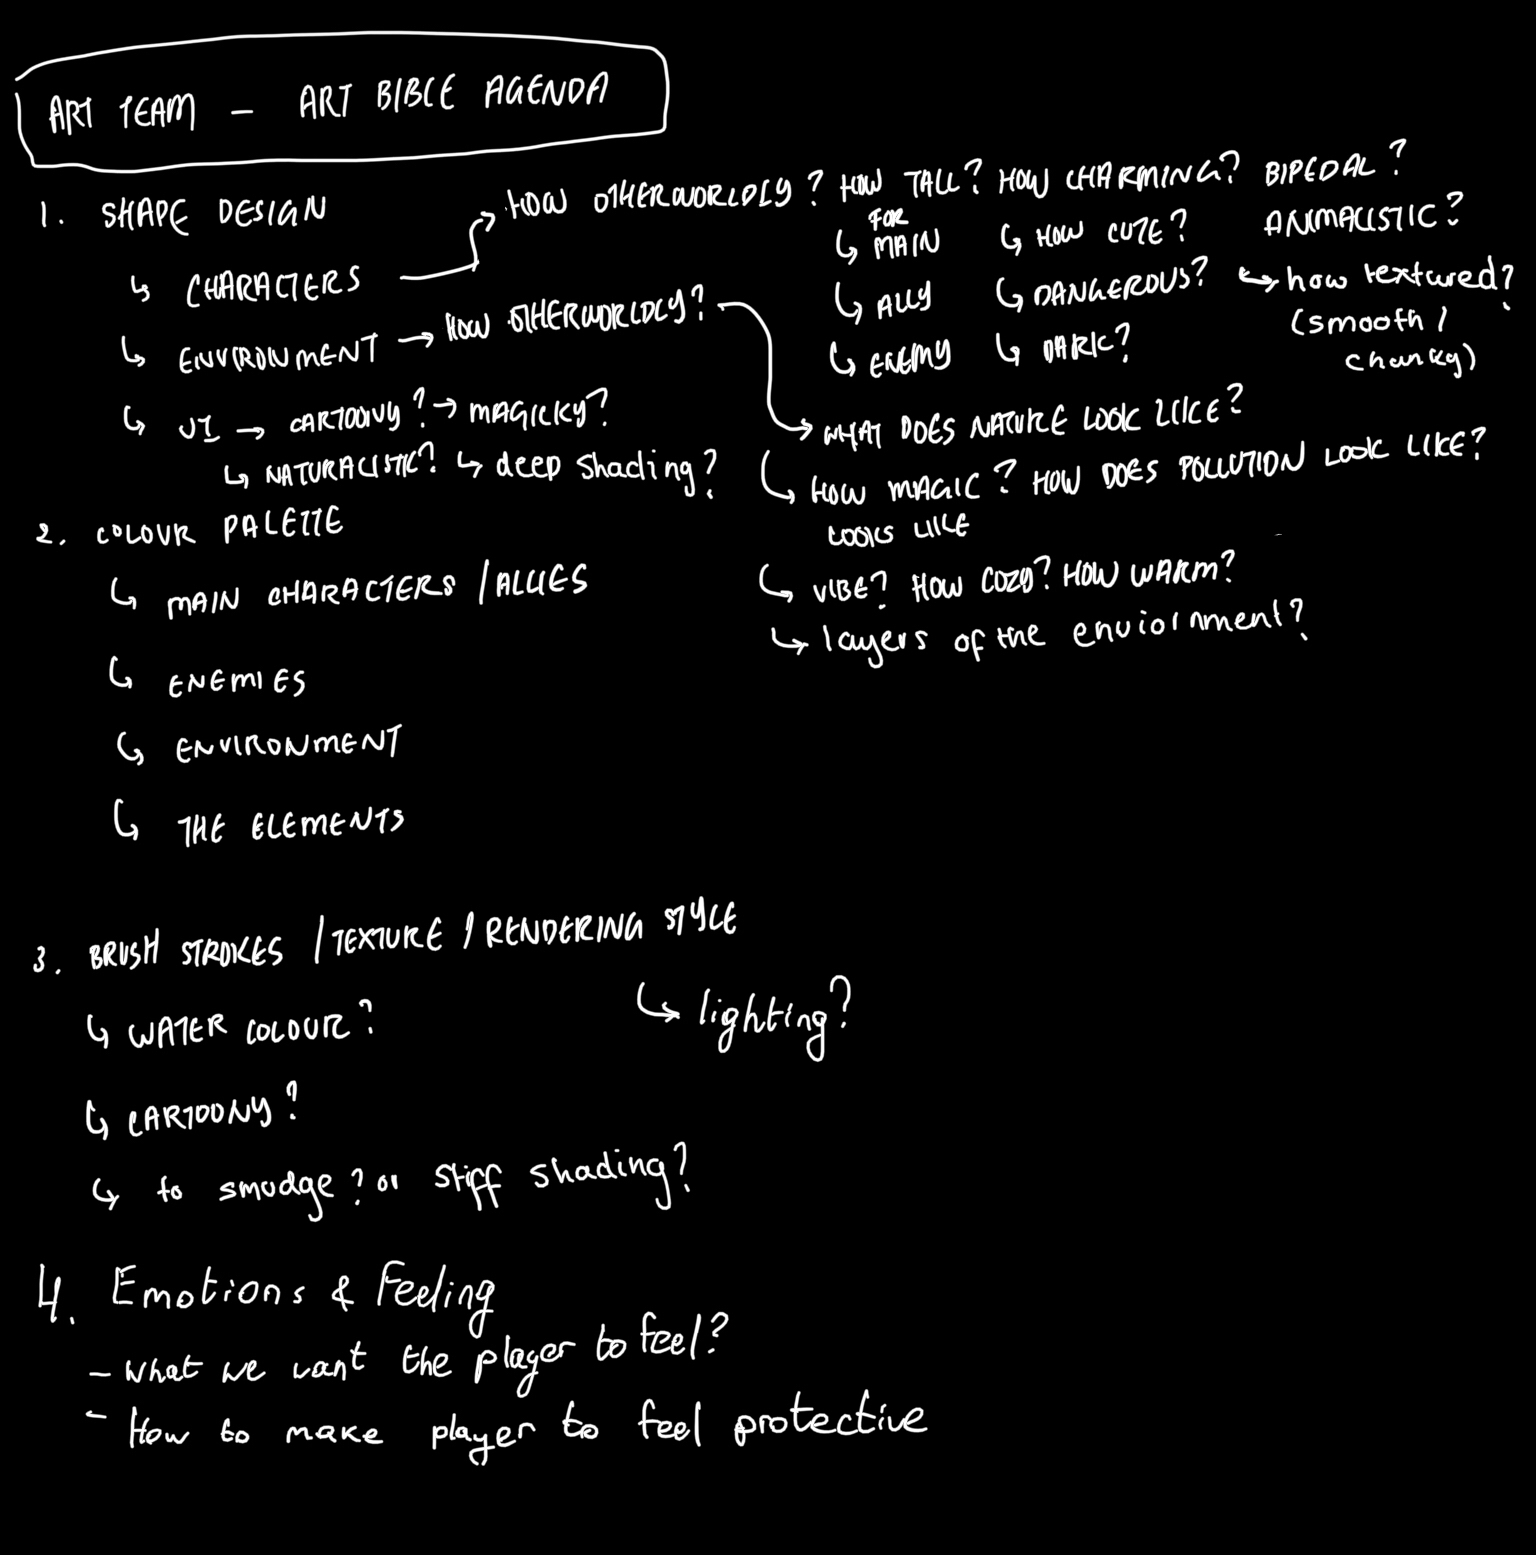 ART TEAM - ART BIBLE AGENDA
1. SHAPE DESIGN
↳ CHARACTERS → HOW OTHERWORLDLY? HOW TALL? HOW CHARMING? BIPEDAL?
↳ FOR MAIN ↳ HOW CUTE? ANIMALISTIC?
↳ ALLY ↳ DANGEROUS? ↳ how textured?
(smooth / chunky)
↳ ENEMY ↳ DARK?
↳ ENVIRONMENT → HOW OTHERWORLDLY?
→ WHAT DOES NATURE LOOK LIKE?
↳ HOW MAGIC? HOW DOES POLLUTION LOOK LIKE?
LOOKS LIKE
↳ VIBE? HOW COZY? HOW WARM?
↳ layers of the enviornment?
↳ UI → CARTOONY? → MAGICKY?
↳ NATURALISTIC? ↳ deep shading?
2. COLOUR PALETTE
↳ MAIN CHARACTERS / ALLIES
↳ ENEMIES
↳ ENVIRONMENT
↳ THE ELEMENTS
3. BRUSH STROKES / TEXTURE / RENDERING STYLE
↳ lighting?
↳ WATER COLOUR?
↳ CARTOONY?
↳ to smudge? or stiff shading?
4. Emotions & Feeling
- What we want the player to feel?
- How to make player to feel protective